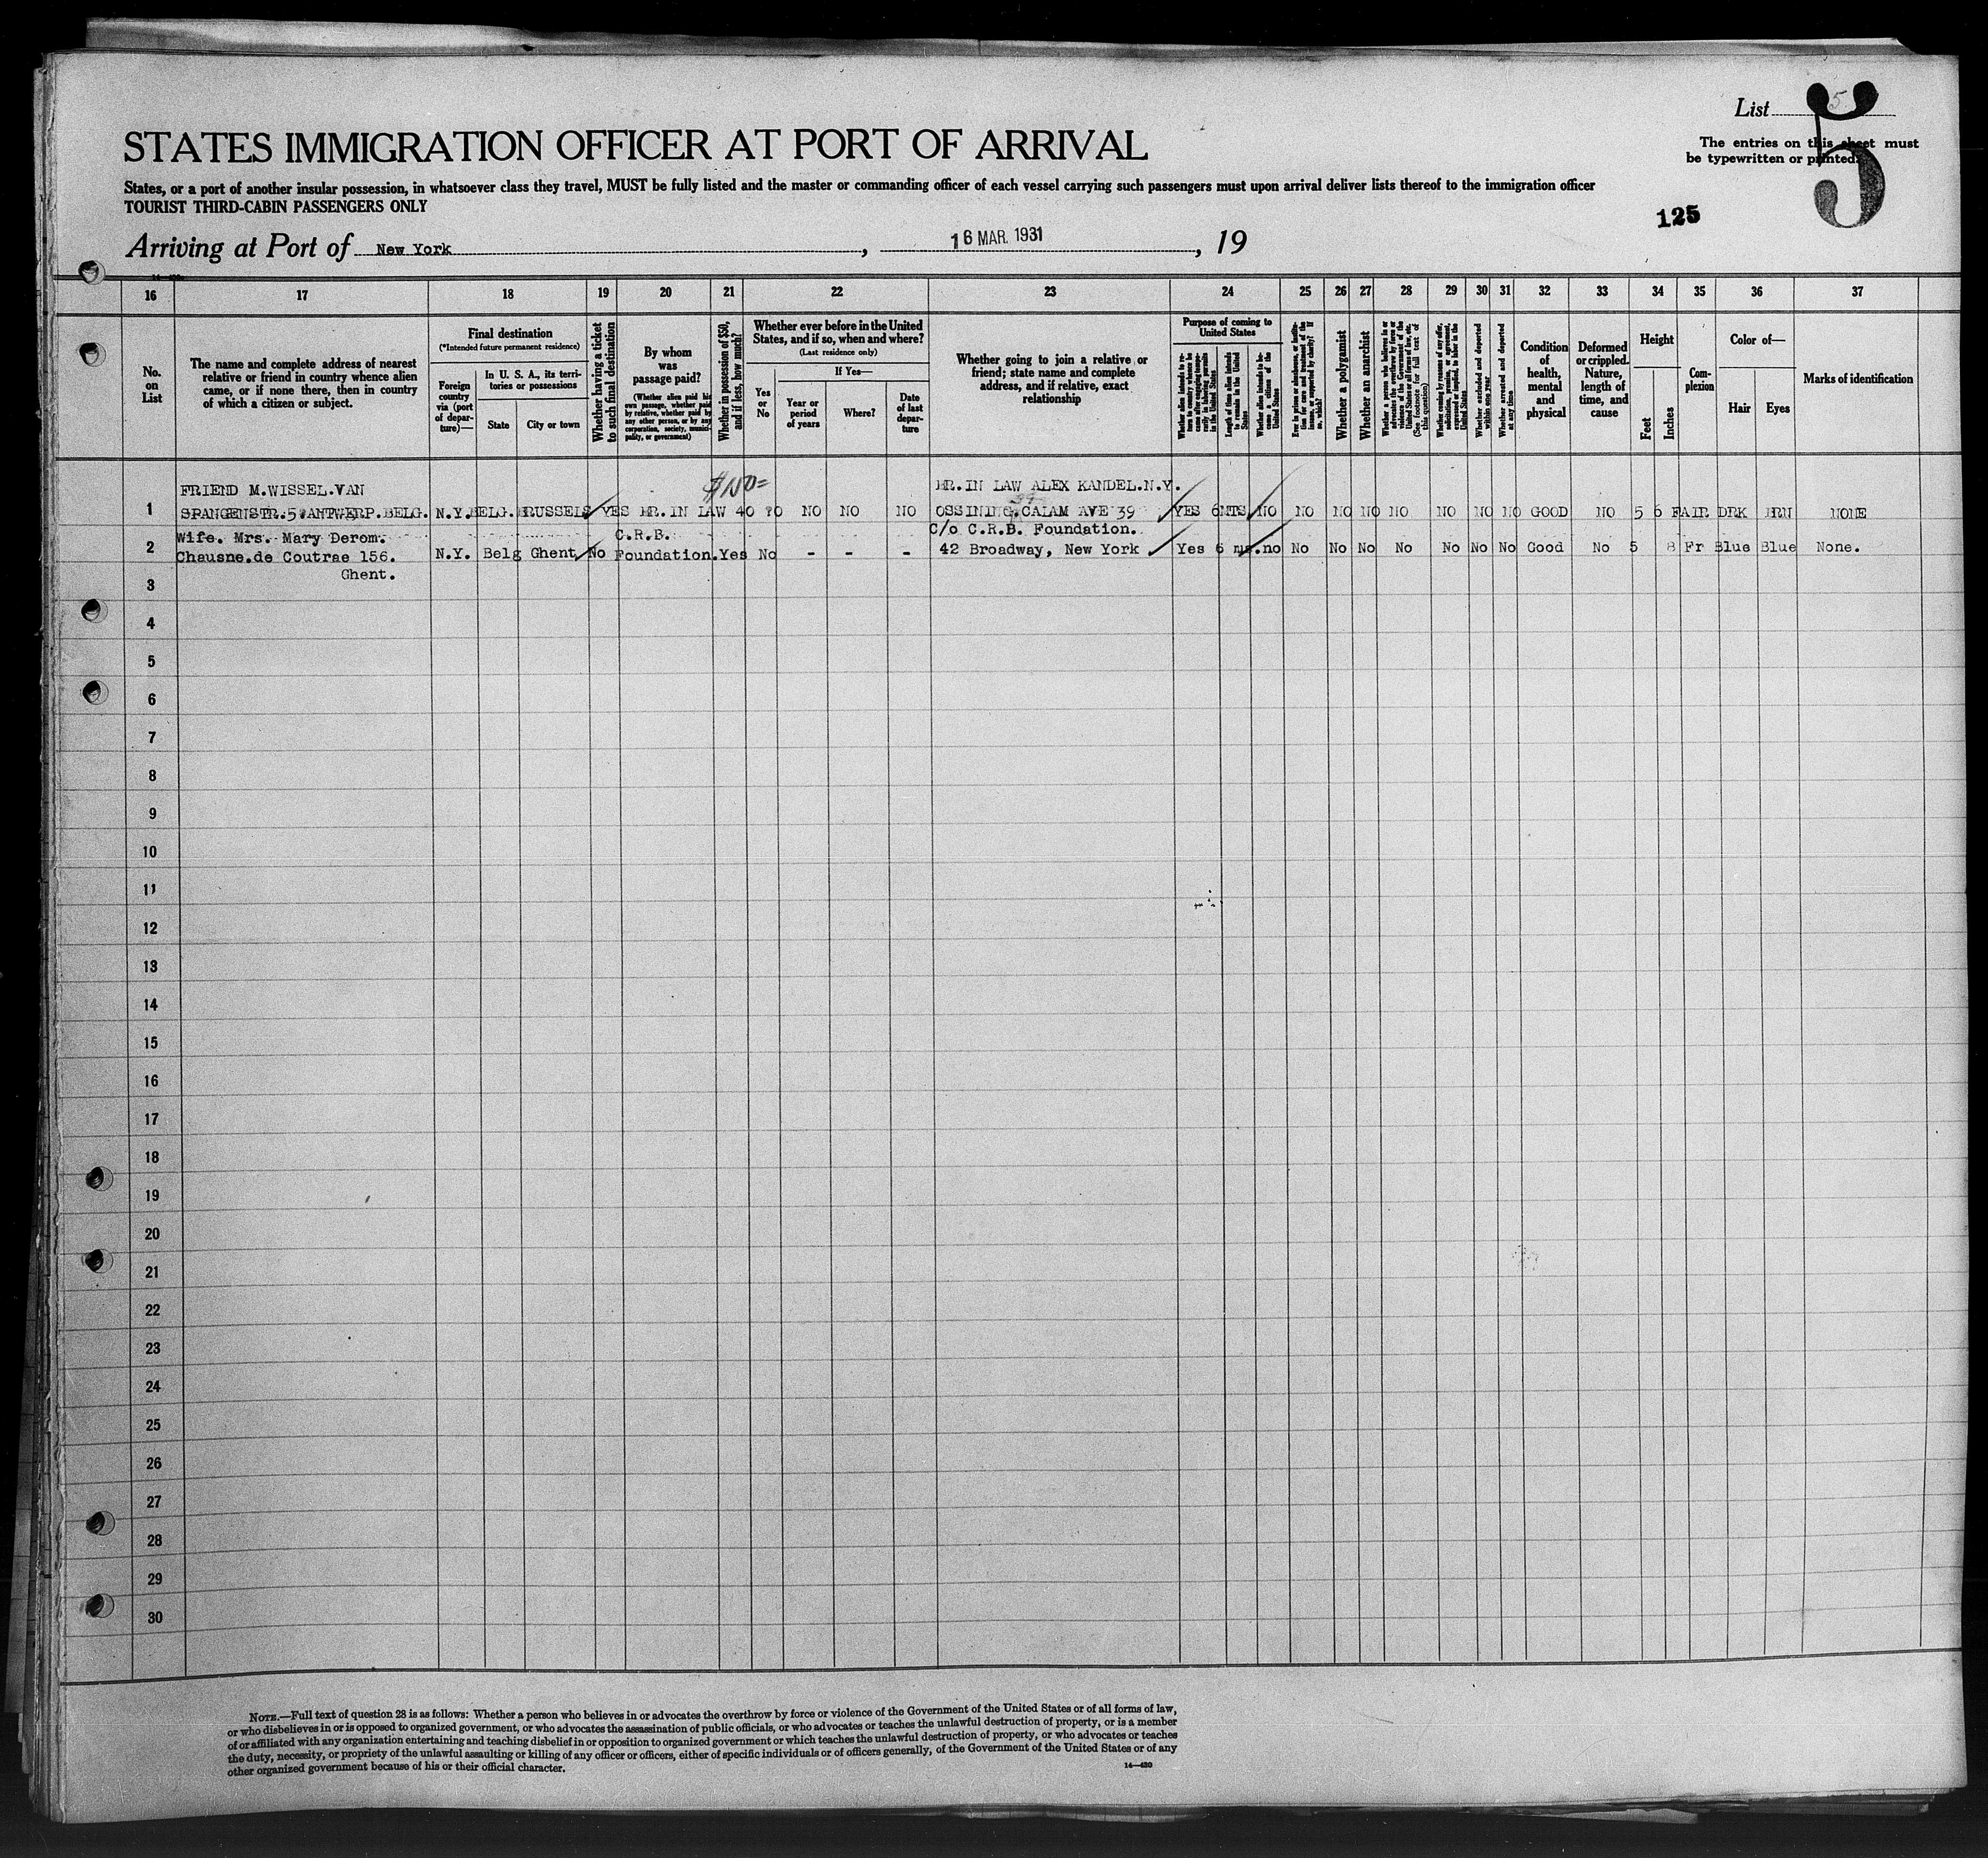 List 5
5
STATES IMMIGRATION OFFICER AT PORT OF ARRIVAL
The entries on this sheet must
be typewritten or printed.
States, or a port of another insular possession, in whatsoever class they travel, MUST be fully listed and the master or commanding officer of each vessel carrying such passengers must upon arrival deliver lists thereof to the immigration officer
TOURIST THIRD-CABIN PASSENGERS ONLY
125
Arriving at Port of New York, 16 MAR. 1931, 19
16 17 18 19 20 21 22 23 24 25 26 27 28 29 30 31 32 33 34 35 36 37
No.
on
List
The name and complete address of nearest
relative or friend in country whence alien
came, or if none there, then in country
of which a citizen or subject.
Final destination
(*Intended future permanent residence)
Foreign
country
via (port
of depar-
ture)—
In U. S. A., its terri-
tories or possessions
State
City or town
Whether having a ticket
to such final destination
By whom
was
passage paid?
(Whether alien paid his
own passage, whether paid
by relative, whether paid by
any other person, or by any
corporation, society, munici-
pality, or government)
Whether in possession of $50,
and if less, how much?
Whether ever before in the United
States, and if so, when and where?
(Last residence only)
Yes
or
No
If Yes—
Year or
period
of years
Where?
Date
of last
depar-
ture
Whether going to join a relative or
friend; state name and complete
address, and if relative, exact
relationship
Purpose of coming to
United States
Length of time alien intends
to remain in the United
States
Whether alien intends to be-
come a citizen of the
United States
Whether a polygamist
Whether an anarchist
(See footnote for full text of
this question)
Whether excluded and deported
within one year
Whether arrested and deported
at any time
Condition
of
health,
mental
and
physical
Deformed
or crippled.
Nature,
length of
time, and
cause
Height
Feet
Inches
Com-
plexion
Color of—
Hair
Eyes
Marks of identification
FRIEND M.WISSEL.VAN BR. IN LAW ALEX KANDEL.N.Y.
1 SPANGENSTR.5.ANTWERP.BELG. N.Y. BELG. BRUSSELS YES BR. IN LAW 40 NO NO NO OSSINING.CALAM AVE 39 YES 6MTS NO NO NO NO NO NO NO NO GOOD NO 5 6 FAIR DRK BRN NONE
Wife. Mrs. Mary Derom. C.R.B. C/o C.R.B. Foundation.
2 Chausne.de Coutrae 156. N.Y. Belg Ghent No Foundation. Yes No - - - 42 Broadway, New York Yes 6 no No No No No No No No Good No 5 8 Fr Blue Blue None.
Ghent.
3
4
5
6
7
8
9
10
11
12
13
14
15
16
17
18
19
20
21
22
23
24
25
26
27
28
29
30
NOTE.—Full text of question 28 is as follows: Whether a person who believes in or advocates the overthrow by force or violence of the Government of the United States or of all forms of law,
or who disbelieves in or is opposed to organized government, or who advocates the assassination of public officials, or who advocates or teaches the unlawful destruction of property, or is a member
of or affiliated with any organization entertaining and teaching disbelief in or opposition to organized government or which teaches the unlawful destruction of property, or who advocates or teaches
the duty, necessity, or propriety of the unlawful assaulting or killing of any officer or officers, either of specific individuals or of officers generally, of the Government of the United States or of any
other organized government because of his or their official character.
14—420